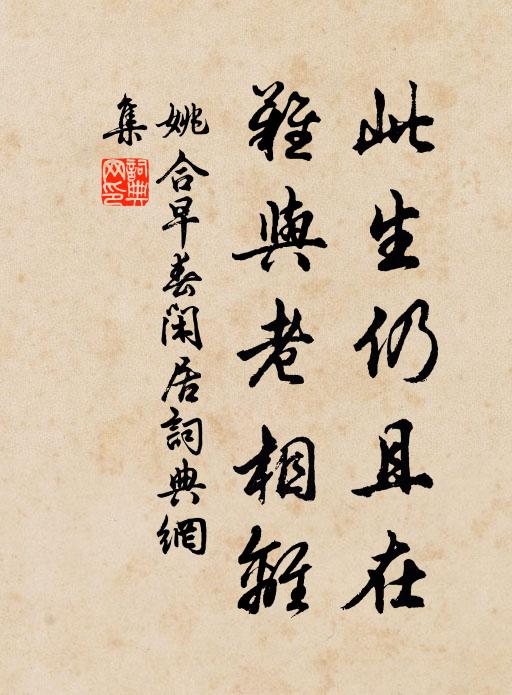 此生仍且在
難與老相離
姚合早春閑居詞典網
集
詞典網印